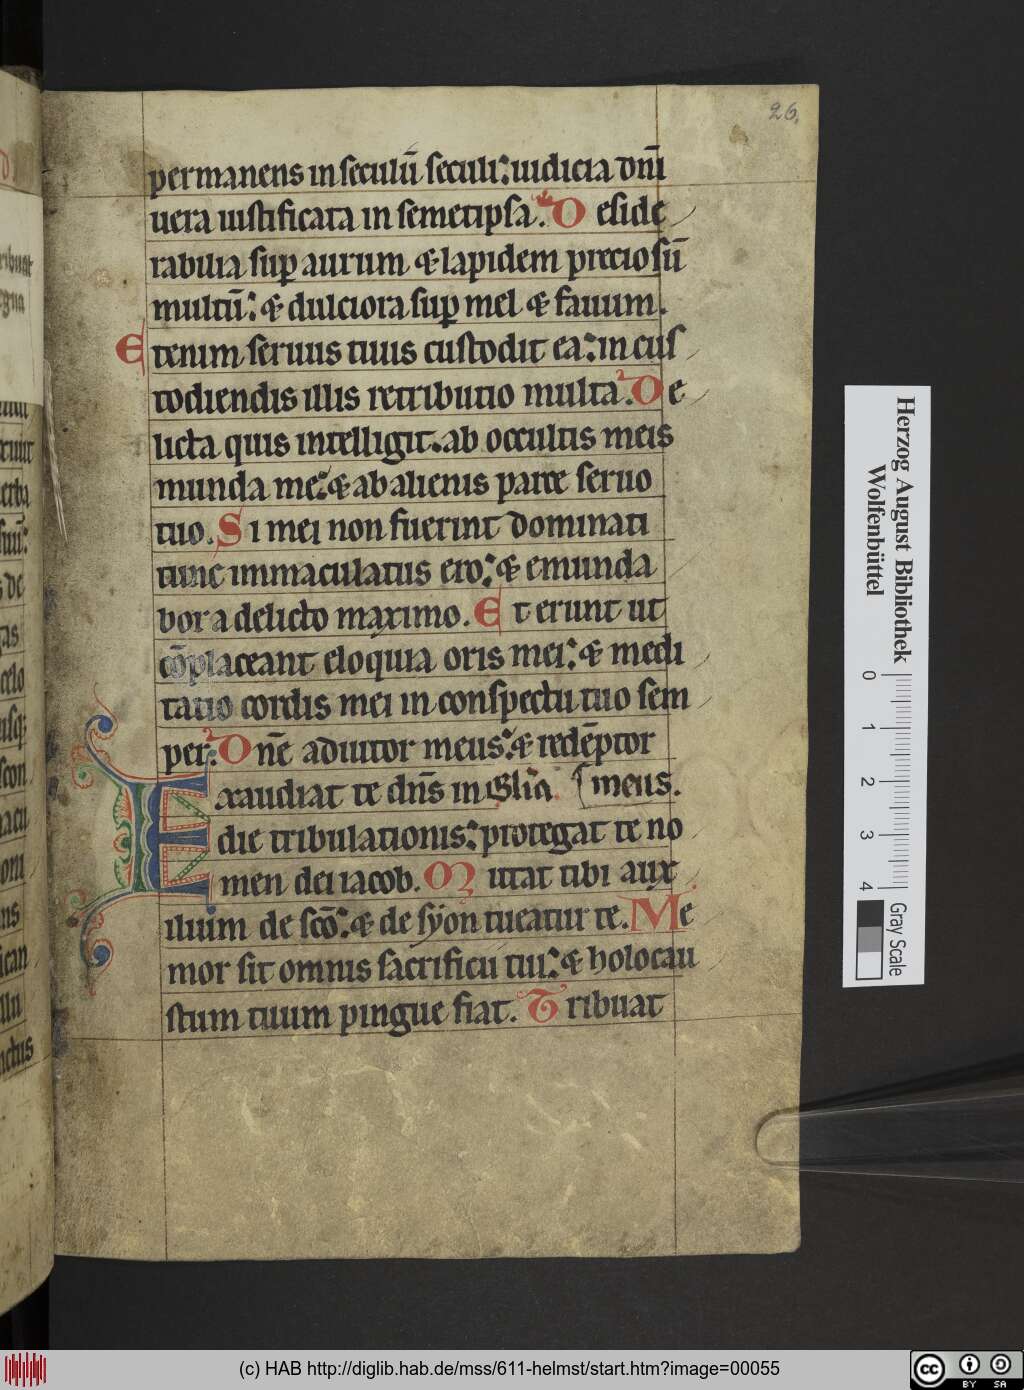 26.
permanens in seculū seculi: iudicia dn̄i
uera iustificata in semetipsa. D eside
rabilia sup aurum & lapidem preciosū
multū: & dulciora sup mel & fauum.
E tenim seruus tuus custodit ea: in cus
todiendis illis retributio multa. D e
licta quis intelligit. ab occultis meis
munda me: & ab alienis parce seruo
tuo. S i mei non fuerint dominati
tunc immaculatus ero: & emunda
bor a delicto maximo. E t erunt ut
cōplaceant eloquia oris mei: & medi
tatio cordis mei in conspectu tuo sem
per. D n̄e adiutor meus: & redēptor
meus.
E xaudiat te dn̄s in
die tribulationis: protegat te no
men dei iacob. M ittat tibi aux
ilium de scō: & de syon tueatur te. Me
mor sit omnis sacrificii tui: & holocau
stum tuum pingue fiat. T ribuat
Herzog August Bibliothek
Wolfenbüttel
0 1 2 3 4
Gray Scale
(c) HAB http://diglib.hab.de/mss/611-helmst/start.htm?image=00055
cc BY SA